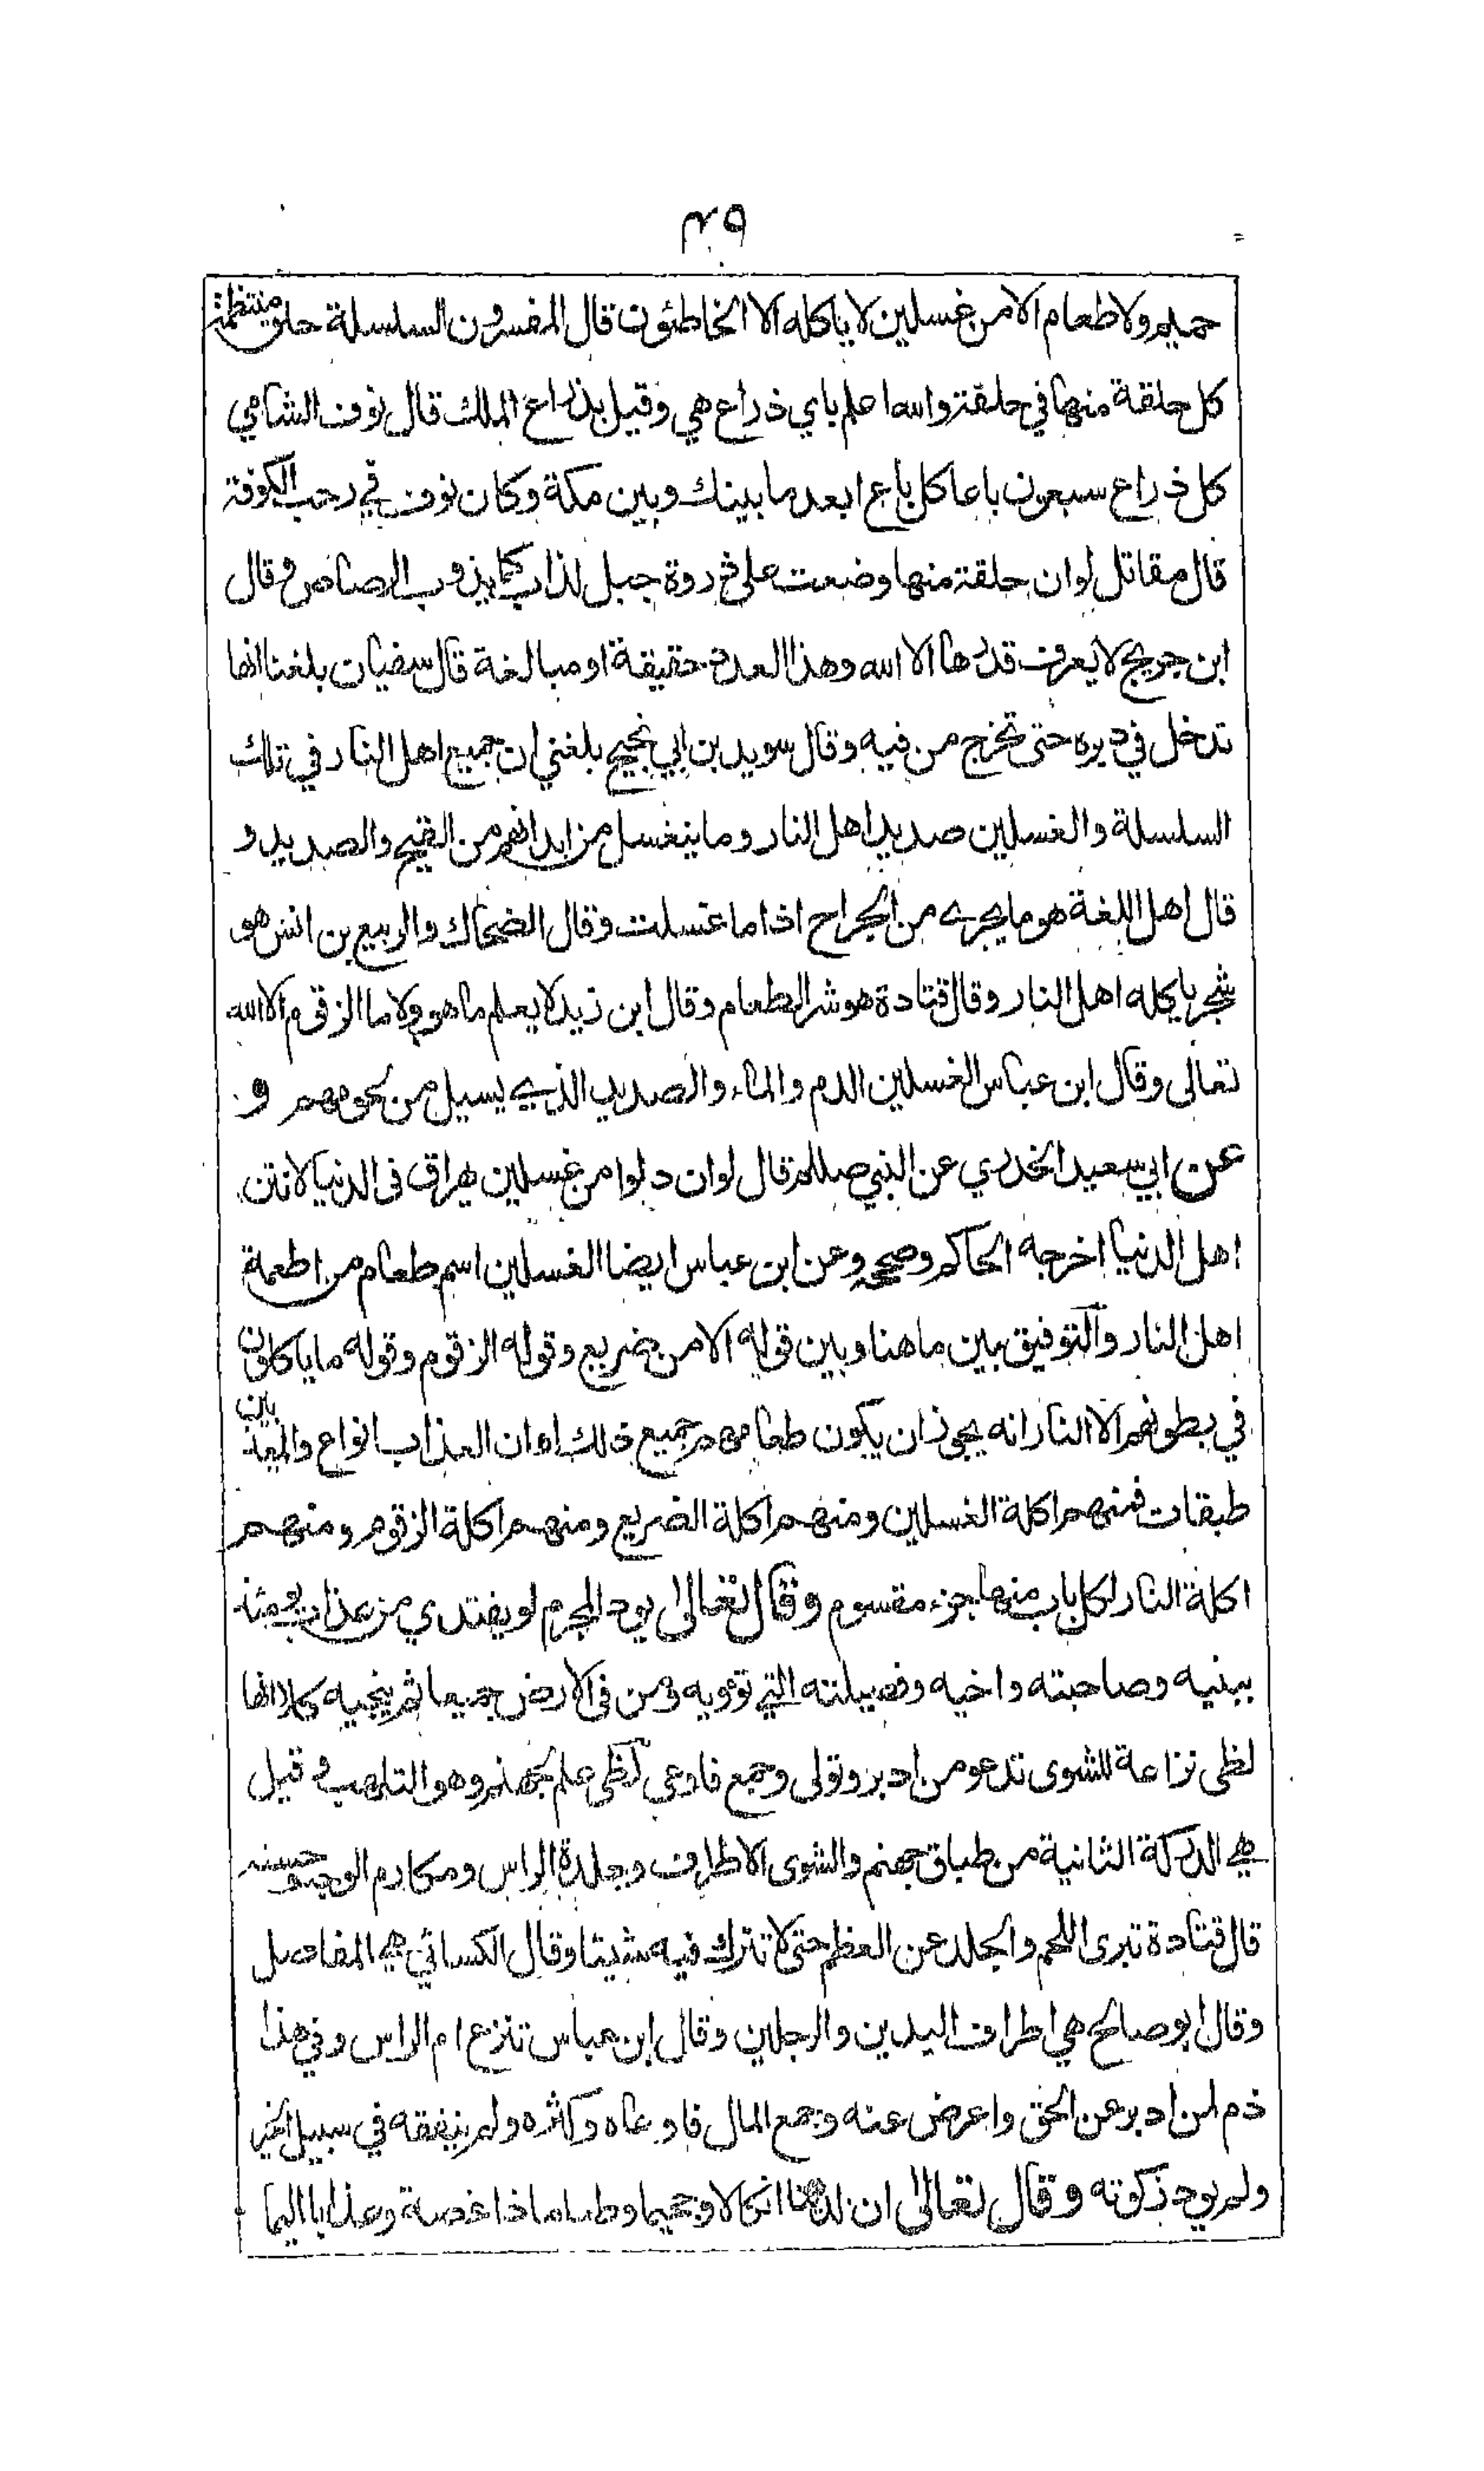 ٤٩
حميم ولا طعام الا من غسلين لا ياكله الا الخاطئون قال المفسرون السلسلة حلق منتظمة
كل حلقة منها في حلقة والله اعلم باي ذراع هي وقيل بذراع الملك قال نوف الشامي
كل ذراع سبعون باعا كل باع ابعد ما بينك وبين مكة وكان نوف في رحبة الكوفة
قال مقاتل لو ان حلقة منها وضعت على ذروة جبل لذاب كما يذوب الرصاص وقال
ابن جريج لا يعرف قدرها الا الله وهذا العدد حقيقة او مبالغة قال سفيان بلغنا انها
تدخل في دبره حتى تخرج من فيه وقال سويد بن ابي نجيح بلغني ان جميع اهل النار في تلك
السلسلة والغسلين صديد اهل النار وما ينغسل من ابدانهم من القيح والصديد و
قال اهل اللغة هو ما يجري من الجراح اذا ما غسلت وقال الضحاك والربيع بن انس هو
شجر ياكله اهل النار وقال قتادة هو شر الطعام وقال ابن زيد لا يعلم ما هو ولا ما الزقوم الا الله
تعالى وقال ابن عباس الغسلين الدم والماء والصديد الذي يسيل من لحومهم و
عن ابي سعيد الخدري عن النبي صللم قال لو ان دلوا من غسلين يهراق في الدنيا لانتن
اهل الدنيا اخرجه الحاكم وصححه وعن ابن عباس ايضا الغسلين اسم طعام من اطعمة
اهل النار والتوفيق بين ما هنا وبين قوله الا من ضريع وقوله الزقوم وقوله ما ياكلون
في بطونهم الا النار انه يجوز ان يكون طعامهم جميع ذلك او ان العذاب انواع والمعذبين
طبقات فمنهم اكلة الغسلين ومنهم اكلة الضريع ومنهم اكلة الزقوم ومنهم
اكلة النار لكل باب منها جزء مقسوم وقال تعالى يود المجرم لو يفتدي من عذاب يومئذ
ببنيه وصاحبته واخيه وفصيلته التي تؤويه ومن في الارض جميعا ثم ينجيه كلا انها
لظى نزاعة للشوى تدعو من ادبر وتولى وجمع فاوعى لظى علم لجهنم وهو التلهب وقيل
هي الدركة الثانية من طباق جهنم والشوى الاطراف وجلدة الراس ومكارم الوجه وحسنه
قال قتادة تبرى اللحم والجلد عن العظم حتى لا تترك فيه شيئا وقال الكسائي هي المفاصل
وقال ابو صالح هي اطراف اليدين والرجلين وقال ابن عباس تنزع ام الراس وفي هذا
ذم لمن ادبر عن الحق واعرض عنه وجمع المال فاوعاه وكثره ولم ينفقه في سبيل الخير
ولم يود زكوته وقال تعالى ان لدينا انكالا وجحيما وطعاما ذا غصة وعذابا اليما